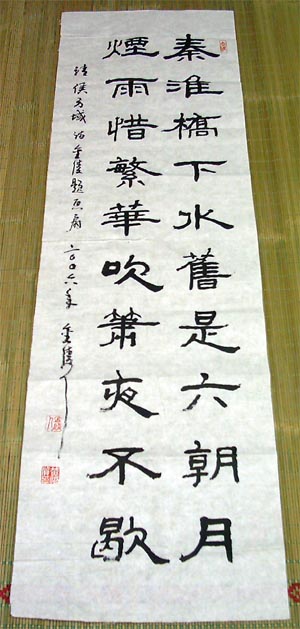 秦淮橋下水舊是六朝月
煙雨惜繁華吹簫夜不歇
清侯方域詩金陵題画扇二〇〇六年